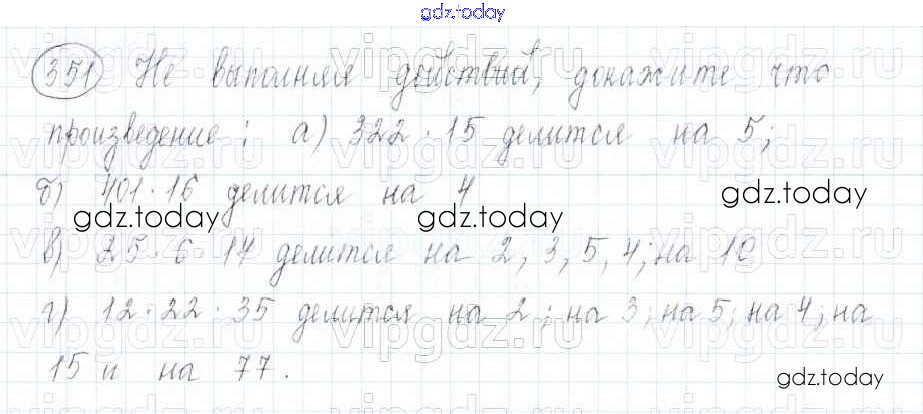 gdz.today
351 Не выполняя действий, докажите что
произведение: а) 322 · 15 делится на 5;
б) 401 · 16 делится на 4
gdz.today gdz.today gdz.today
в) 25 · 6 · 17 делится на 2, 3, 5, 4; на 10
г) 12 · 22 · 35 делится на 2; на 3; на 5; на 4; на
15 и на 77.
gdz.today